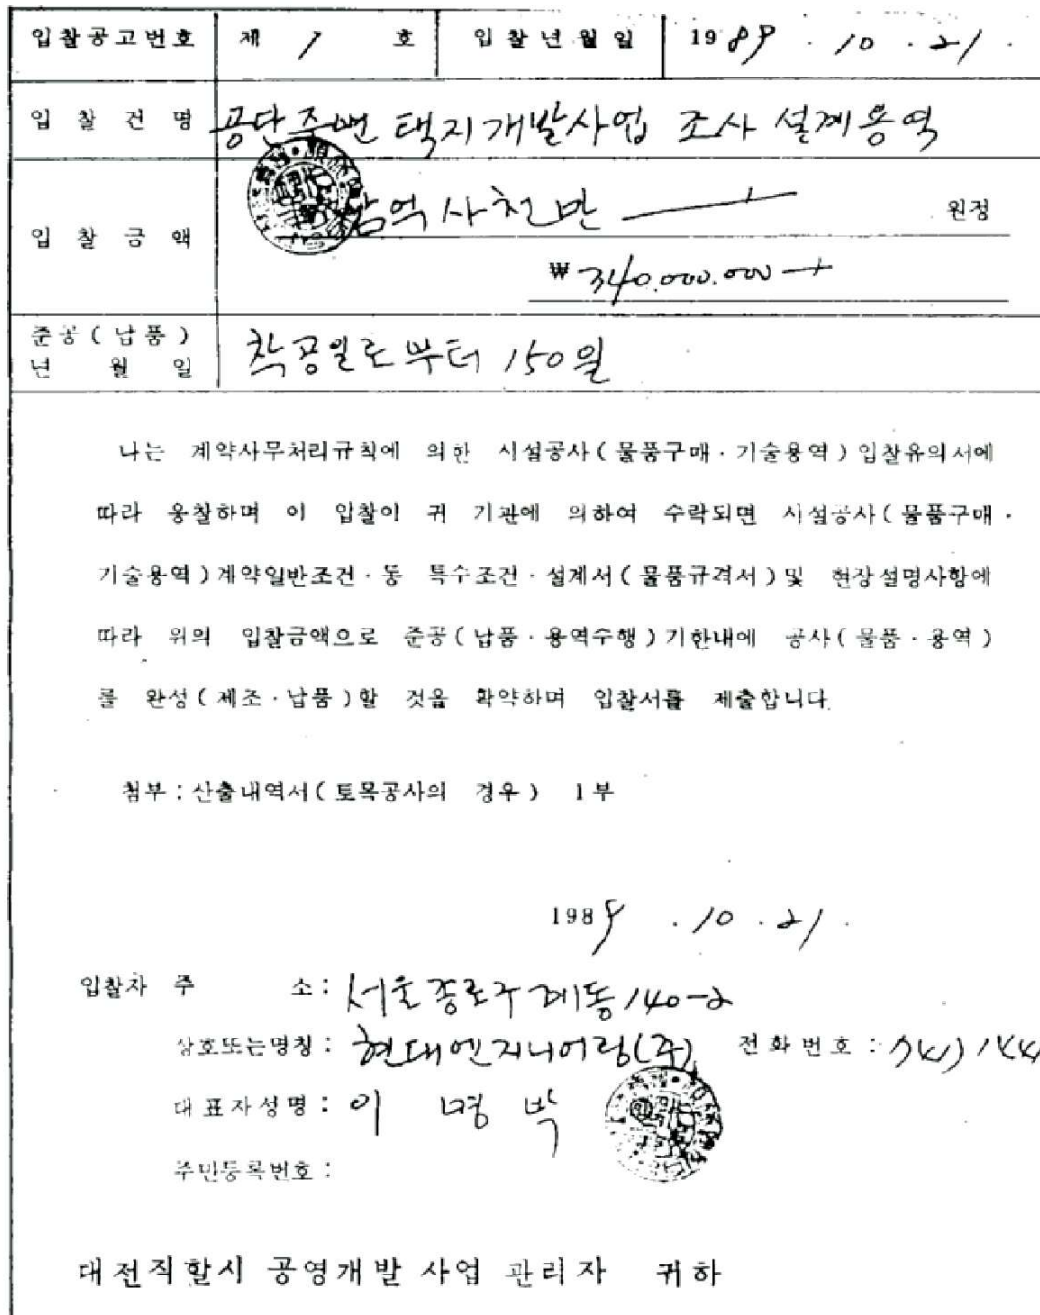 입찰공고번호 제 1 호 입찰년월일 1989 . 10 . 21 .
입찰건명 공단주변 택지개발사업 조사 설계용역
삼억사천만 원정
입찰금액
₩ 340.000.000
준공(납품)
년 월 일 착공일로부터 150일
나는 계약사무처리규칙에 의한 시설공사(물품구매·기술용역)입찰유의서에
따라 응찰하며 이 입찰이 귀 기관에 의하여 수락되면 시설공사(물품구매·
기술용역)계약일반조건·동 특수조건·설계서(물품규격서)및 현장설명사항에
따라 위의 입찰금액으로 준공(납품·용역수행)기한내에 공사(물품·용역)
를 완성(제조·납품)할 것을 확약하며 입찰서를 제출합니다.
첨부 : 산출내역서(토목공사의 경우) 1부
1989 . 10 . 21 .
입찰자 주 소 : 서울 종로구 계동 140-2
상호또는명칭 : 현대엔지니어링(주) 전화번호 :
대표자성명 : 이 명 박
주민등록번호 :
대전직할시 공영개발 사업 관리자 귀하